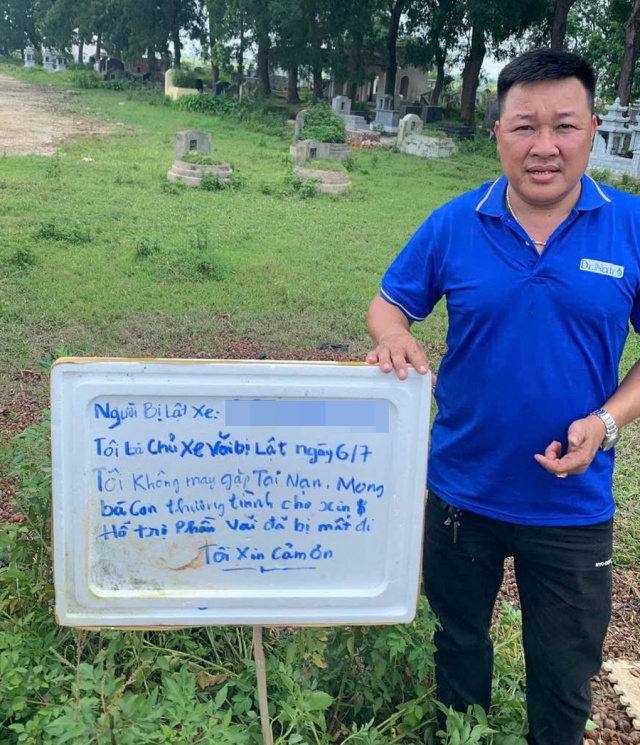 Dr.Natri
Người Bị Lật Xe:
Tôi Là Chủ Xe Vải bị Lật ngày 6/7
Tôi Không may gặp Tai Nạn. Mong
bà Con thương tình cho xin $
Hổ trợ Phần Vải đã bị mất đi
Tôi Xin Cảm ơn